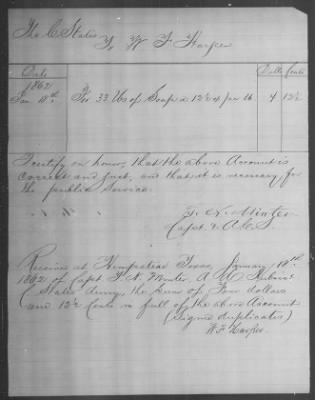 The C States
To W. F. Harper
Date Dolls Cents
1862
Jan 18th For 33 lbs of Soap @ 12½ c per lb 4 12½
I certify on honor, that the above Account is
correct and just, and that it is necessary for
the public service.
J. N. Minter
Capt & A.C.S.
Received at Hempstead Texas, January 18th
1862 of Capt. J. N. Minter, A. C. S.
C States Army, the Sum of Four dollars
and 12½ Cents in full of the above Account
(Signed duplicates)
W F Harper